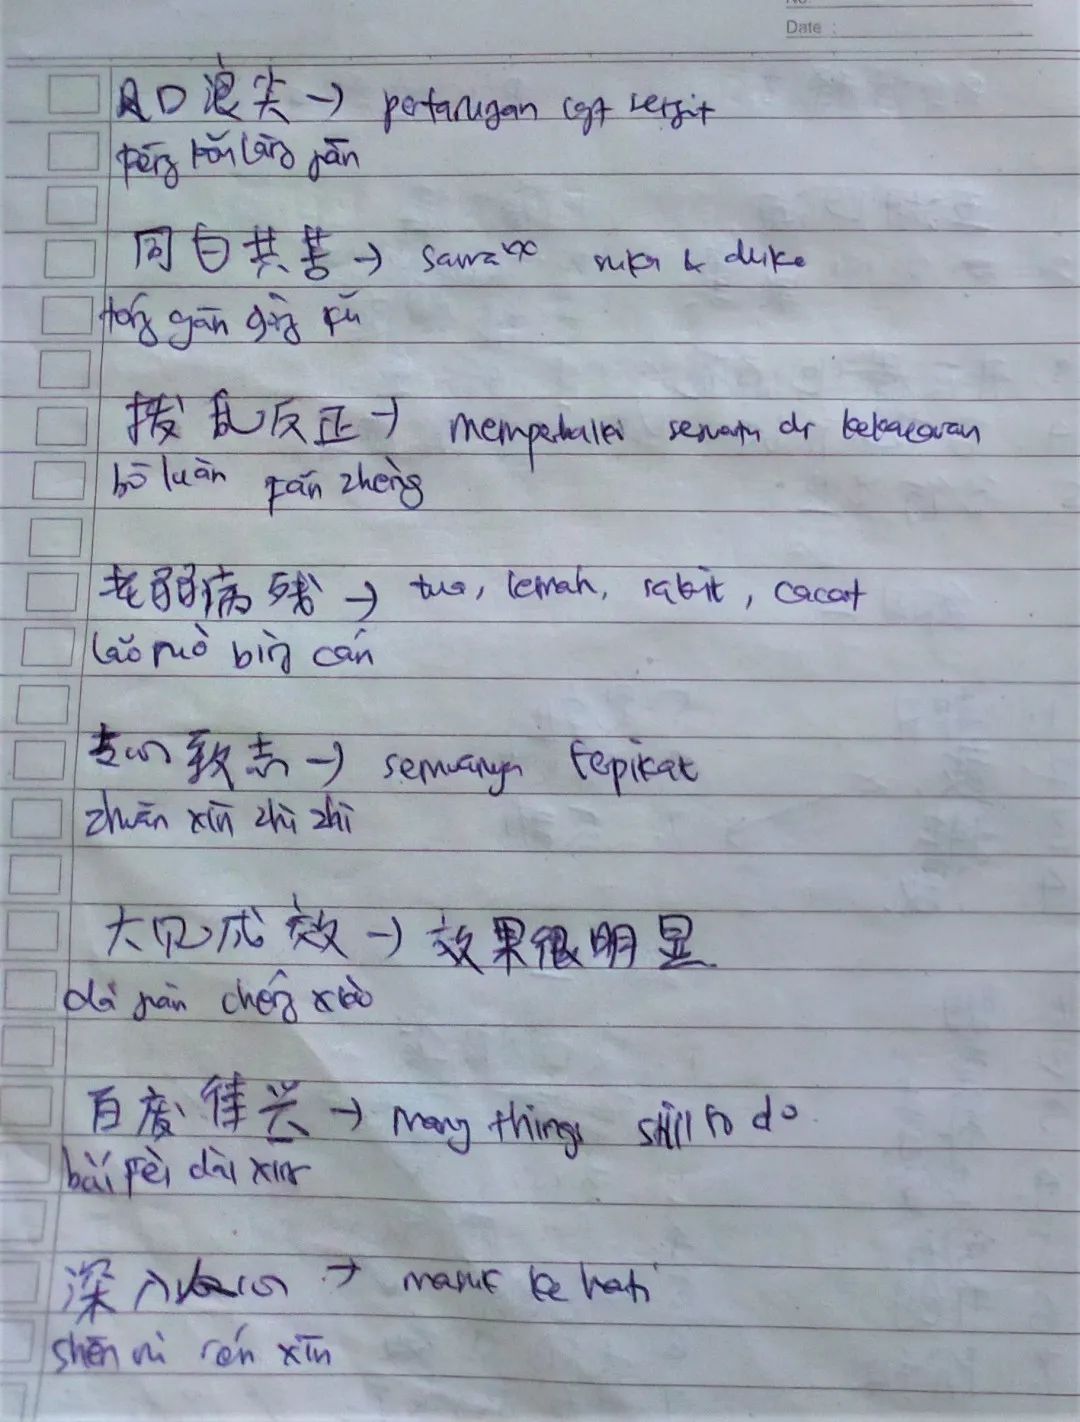 Date :
口浪尖 → pertarungan sgt sengit
fēng kǒu làng jiān
同甘共苦 → sama² suka & duka
tóng gān gòng kǔ
拨乱反正 → memperbaiki sesuatu dr kekacauan
bō luàn fǎn zhèng
老弱病残 → tua, lemah, sakit, cacat
lǎo ruò bìng cán
专心致志 → semuanya terpikat
zhuān xīn zhì zhì
大见成效 → 效果很明显
dà jiàn chéng xiào
百废待兴 → many things still to do
bǎi fèi dài xīng
深入人心 → masuk ke hati
shēn rù rén xīn